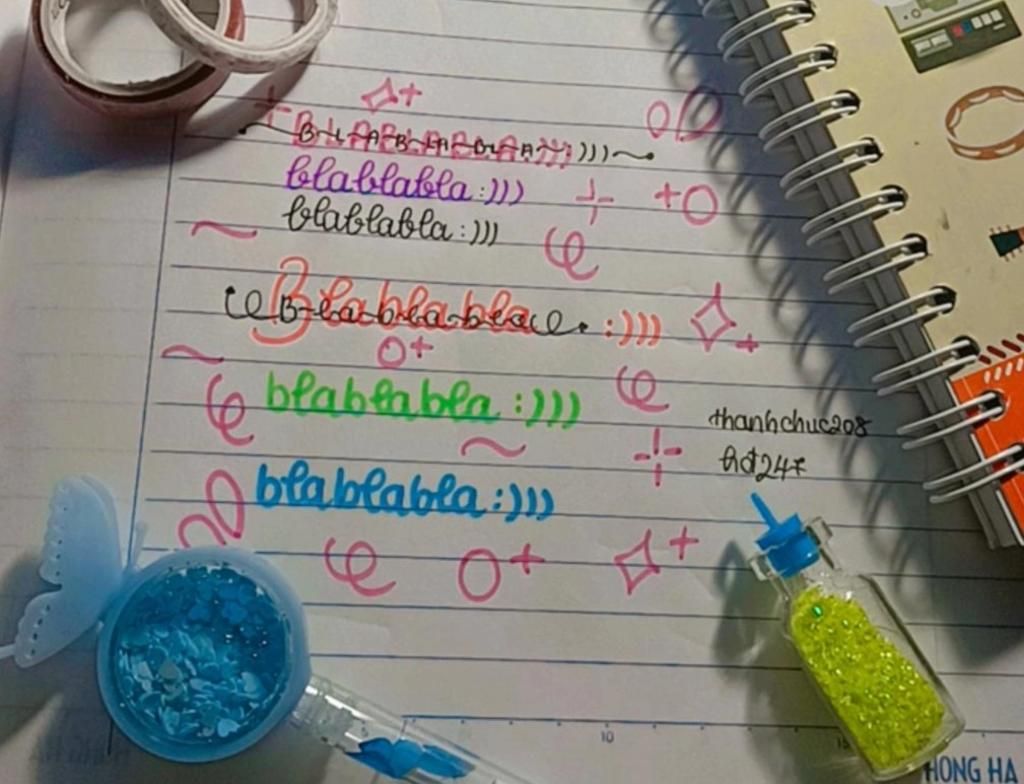 BLABLABLA:))) B-L-A-B-LA-BL-A:)))
blablabla:)))
blablabla:)))
Blablabla :))) B-la-bla-bla
blablabla:)))
thanhchuc208
hd247
blablabla:)))
10
15
HONG HA